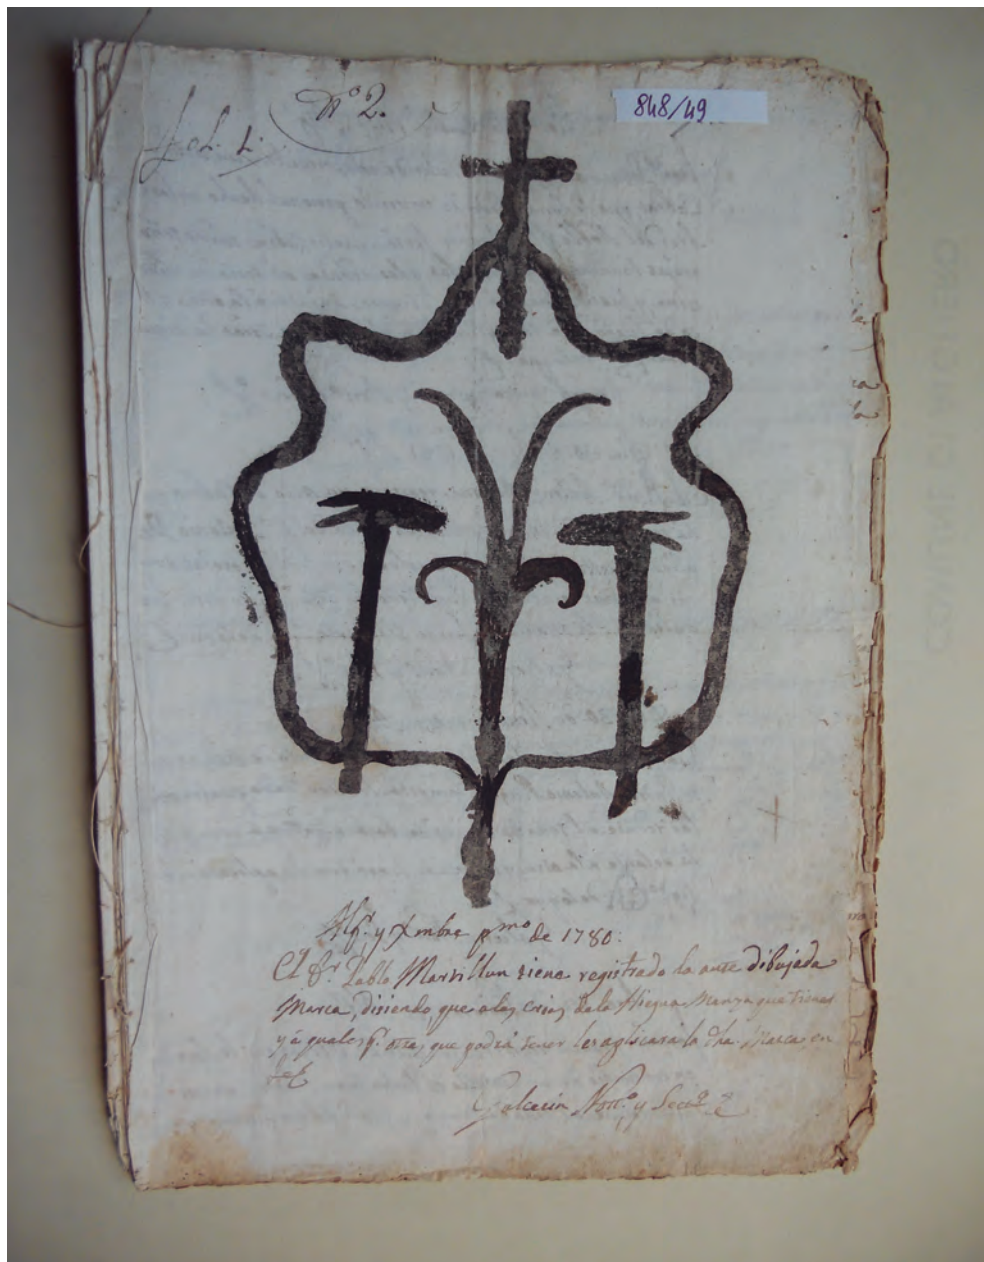 Nº 2.
848/49
fol. 1.
Alg.r y Xmbre pmo de 1780.
El Sr. Pablo Marsillun tiene registrado la ante dibujada
Marca, disiendo que a las crias de la Hiegua Manza que tiene
y á qualesq.r otra, que podrá tener les aplicará la dha. Marca, en
feE
Galcerin Nott.o y Secr.o
COMUNE DI ALGHERO